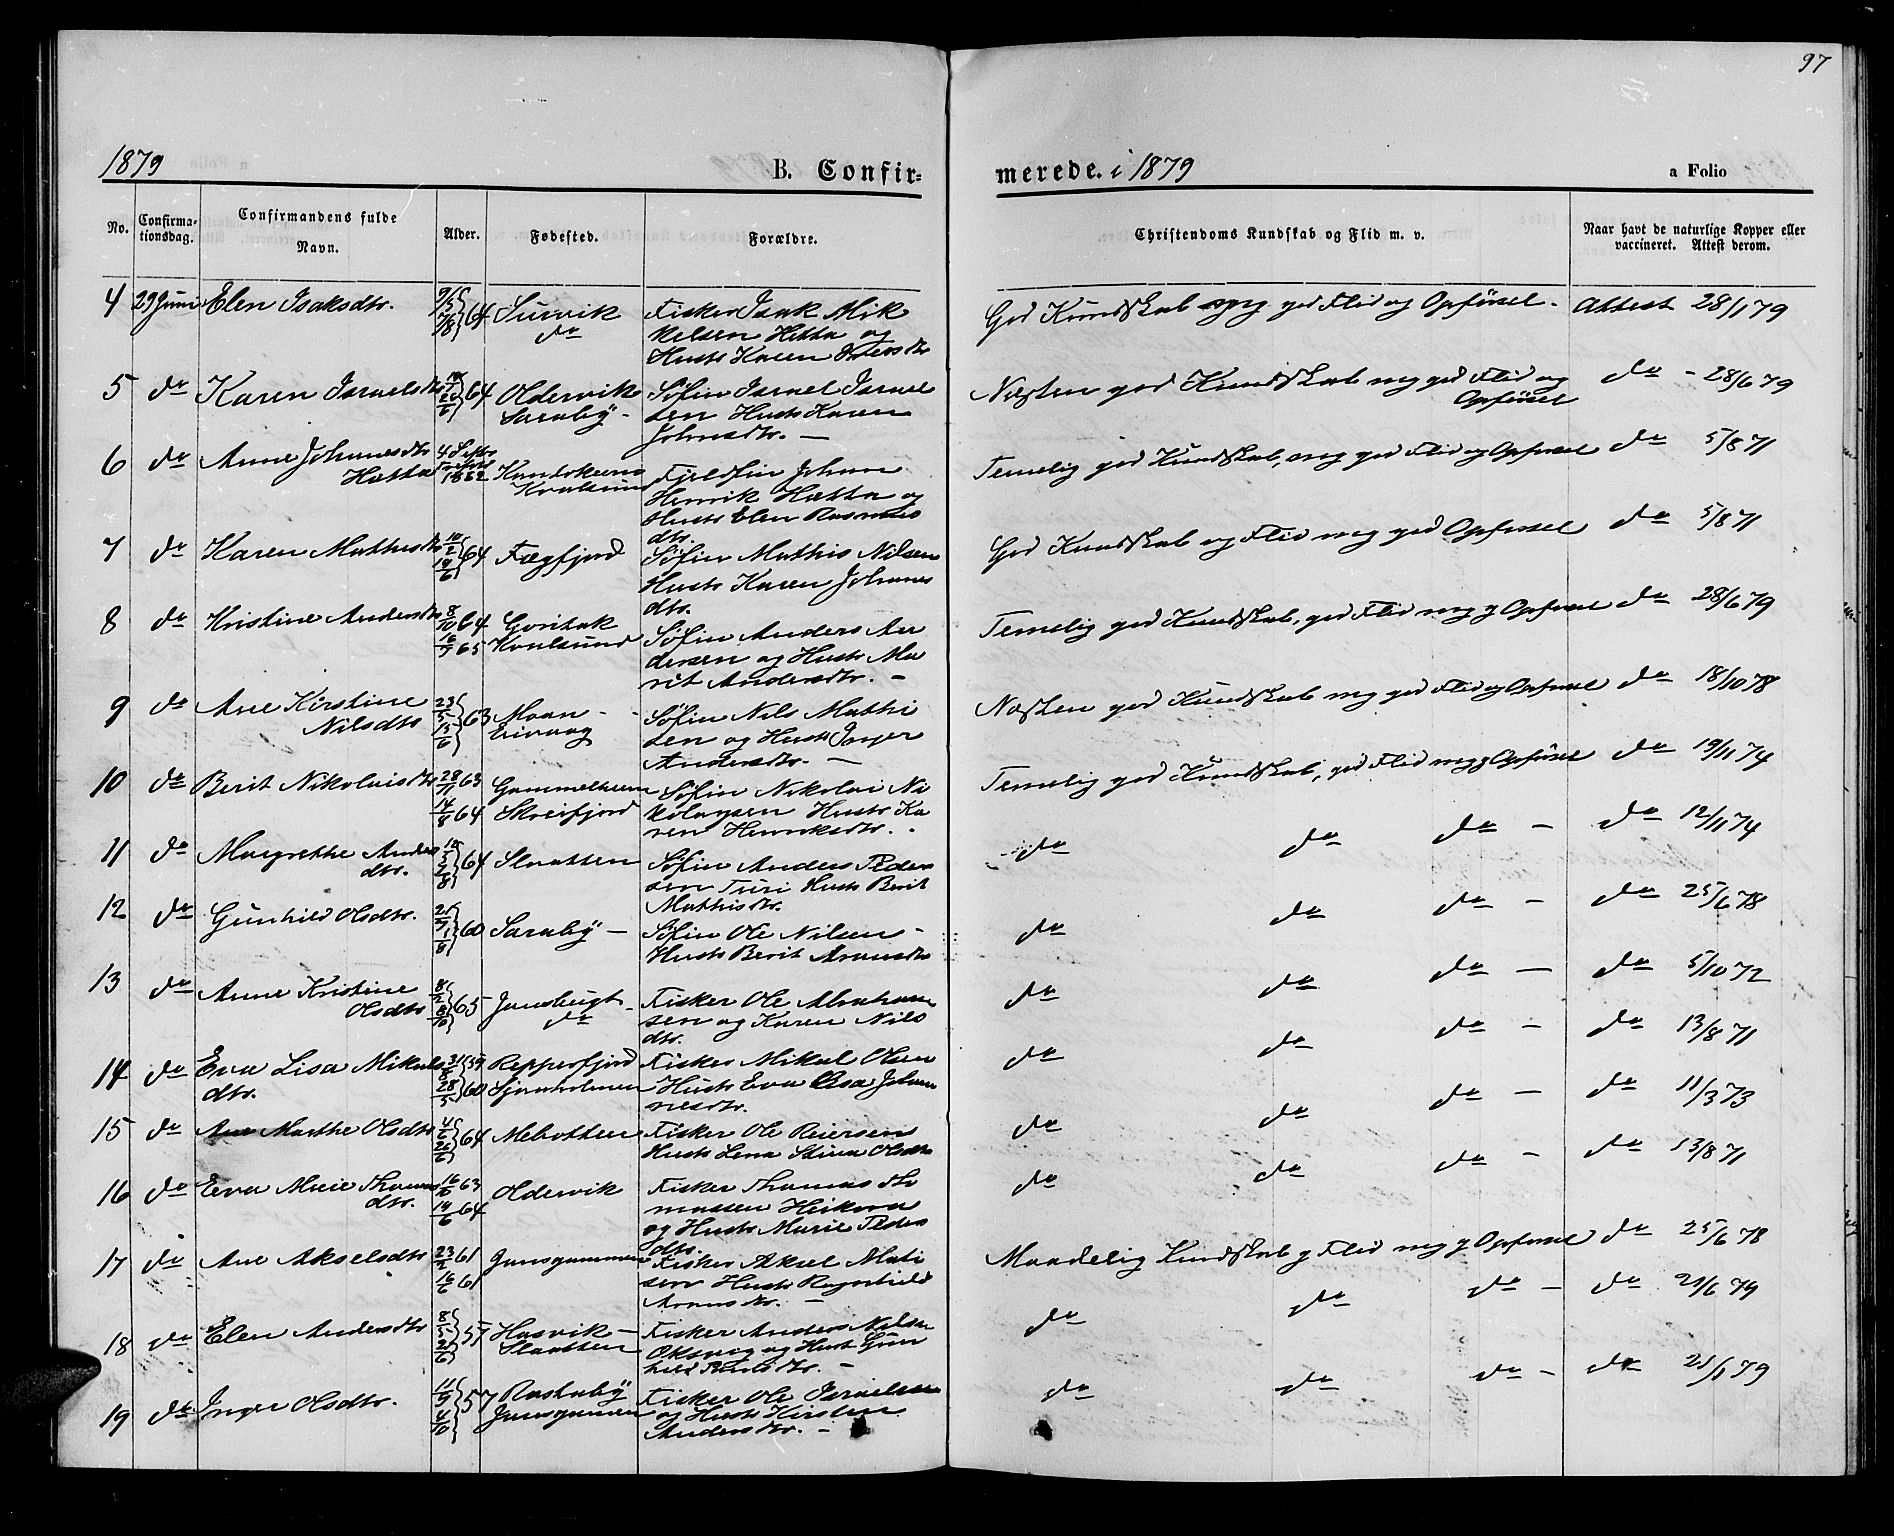 97
1879
B. Confir=
merede. i 1879
a Folio
No.
Confirma-
tionsdag.
Confirmandens fulde
Navn.
Alder.
Fødested.
Forældre.
Christendoms Kundskab og Flid m. v.
Naar havt de naturlige Kopper eller
vaccineret. Attest derom.
4 29 Juni Elen Isaksdtr. 64
do
Fisker Isak Mik
kelsen Hætta og
Hustr Karen
God Kundskab og Flid og Opförsel - Attest 28/1 79
5 do Karen Israelsdtr 64 Oldervik
Saraby -
Söfin Israel Israel
sen Hustr Karen
Johnsdtr. —
Næsten god Kundskab mg god Flid og
Opförsel
do - 28/6 79
6 do Anne Johannesdtr
Hætta
1862 Kautokeino
Kvalsund
Fjeldfin Johan
Henrik Hætta og
Hustr Elen Rasmus
dtr.
Temelig god Kundskab, mg god Flid og Opförsel do 5/8 71
7 do Karen Mathisdtr 64 Fægfjord
Söfin Mathis Nilsen
Hustr Karen Johanes
dtr.
God Kundskab og Flid mg god Opförsel do 5/8 71
8 do Kristine Andersdtr 8/10 64
65 Kvalsund
Söfin Anders An
dersen og Hustr Ma
rit Andersdtr. -
Temelig god Kundskab, god Flid mg g Opförsel do 28/6 79
9 do Ane Kirstine
Nilsdtr
63
Söfin Nils Mathi
sen og Hustr Inger
Andersdtr. —
Næsten god Kundskab mg god Flid og Opförsel do 18/10 78
10 do Berit Nikolaisdtr 28/11 63 Gammelheim
14/8 64 Skreifjord
Söfin Nikolai Ni
kolaysen Hustr Ka
ren Henriksdtr.
Temelig god Kundskab, god Flid mg g Opförsel do 19/11 74
11 do Margrethe Anders
dtr.
64 Slaatten
Söfin Anders Peder
sen Turi Hustr Berit
Mathisdtr.
do do do — do 12/11 74
12 do Gunhild Olsdtr. 60 Saraby —
Söfin Ole Nilsen -
Hustr Berit
do do do — do 25/6 78
13 do Anne Kristine
Olsdtr
65 Jansbugt -
do
Fisker Ole Abraham
sen og Karen Nils
dtr.
do do do — do 5/10 72
14 do Eva Lisa Mikals
dtr.
59 Repperfjord
28/5 60
Fisker Mikal Olsen
Hustr Eva Johan
nesdtr.
do do do — do 13/8 71
15 do Ane Marthe Olsdtr 64
Fisker Ole Reiersen
Hustr Lena Stina Olsdtr
do do do — do 11/3 73
16 do Eva Marie Thomas
dtr.
16/10 63
14/6 64
Oldervik
Fisker Thomas Tho
massen
og Hustr Marie Peders
dtr.
do do do - do 13/8 71
17 do Ane Akselsdtr 23/2 61
16/6 61
Jansgammen
Fisker Aksel Mati
sen Hustr Ragnhild
Maadelig Kundskab g Flid mg g Opförsel do 25/6 78
18 do Elen Andersdtr 57 Hasvik —
Slaatten
Fisker Anders Nilsen
og Hustr Gun
hild
do do do - do 21/6 79
19 do Inger Olsdtr. 57
Jansgammen
Fisker Ole Israelsen
og Hustr Kirsten
Andersdtr. -
do do do - do